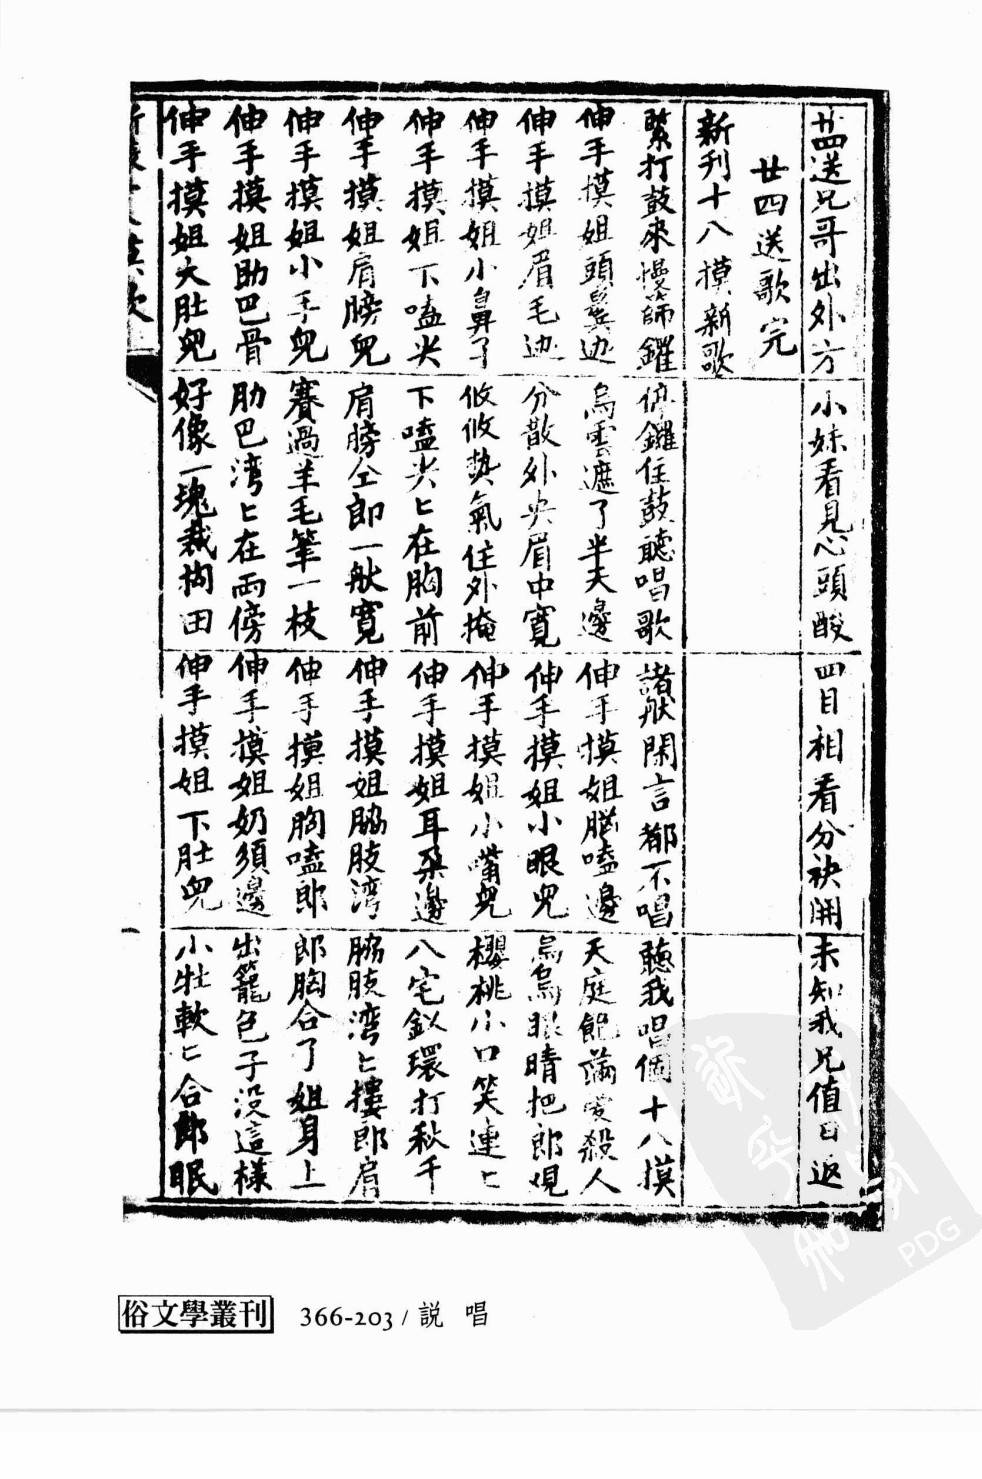 廿四送兄哥出外方 小妹看見心頭酸 四目相看分袂開 未知我兄值日返
廿四送歌完
新刊十八摸新歌
緊打鼓來慢篩鑼 停鑼住鼓聽唱歌 諸般閑言都不唱 聽我唱個十八摸
伸手摸姐頭鬓边 烏雲遮了半天邊 伸手摸姐腦嗑邊 天庭飽滿愛殺人
伸手摸姐眉毛边 分散外央眉中寬 伸手摸姐小眼兜 烏烏眼睛把郎
伸手摸姐小鼻了 攸攸热氣住外掩 伸手摸姐小嘴兜 櫻桃小口笑連匕
伸手摸姐下嗑尖 下嗑尖匕在胸前 伸手摸姐耳朶邊 八宅釵環打秋千
伸手摸姐肩膀兜 肩膀仝郎一般寬 伸手摸姐脇肢湾 脇肢湾匕摟郎肩
伸手摸姐小手兜 賽過羊毛筆一枝 伸手摸姐胸嗑郎 郎胸合了姐身上
伸手摸姐助巴骨 肋巴湾匕在両傍 伸手摸姐奶須邊 出籠包子没這樣
伸手摸姐大肚兜 好像一塊栽田 伸手摸姐下肚兜 小肚軟匕合郎眠
俗文學叢刊 366-203 / 説 唱
PDG